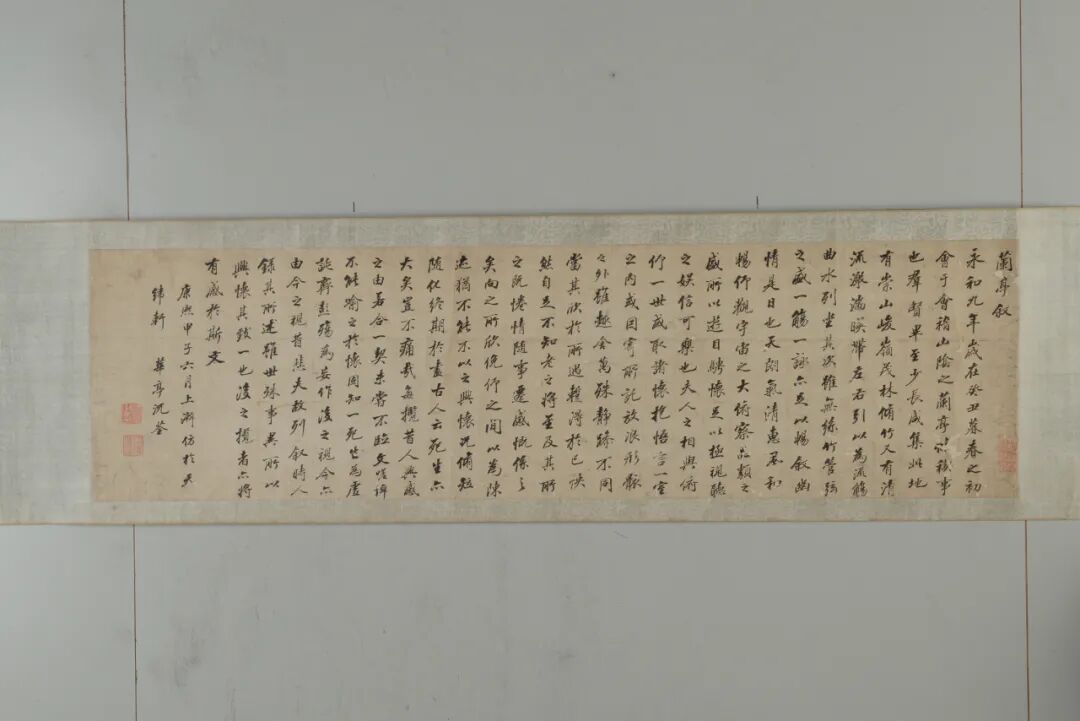 蘭亭叙
永和九年歲在癸丑暮春之初
會于會稽山陰之蘭亭脩禊事
也羣賢畢至少長咸集此地
有崇山峻嶺茂林脩竹又有清
流激湍暎帶左右引以為流觴
曲水列坐其次雖無絲竹管弦
之盛一觴一詠亦足以暢叙幽
情是日也天朗氣清惠風和
暢仰觀宇宙之大俯察品類之
盛所以遊目騁懷足以極視聽
之娱信可樂也夫人之相與俯
仰一世或取諸懷抱悟言一室
之内或因寄所託放浪形骸
之外雖趣舍萬殊静躁不同
當其欣於所遇暫得於己怏
然自足不知老之將至及其所
之既惓情隨事遷感慨係之
矣向之所欣俛仰之間以為陳
迹猶不能不以之興懷况脩短
隨化終期於盡古人云死生亦
大矣豈不痛哉每攬昔人興感
之由若合一契未嘗不臨文嗟悼
不能喻之於懷固知一死為虛
誕齊彭殤為妄作後之視今亦
由今之視昔悲夫故列叙時人
録其所述雖世殊事異所以
興懷其致一也後之攬者亦將
有感於斯文
康熙甲子六月上澣仿於天
緯軒 華亭沈荃